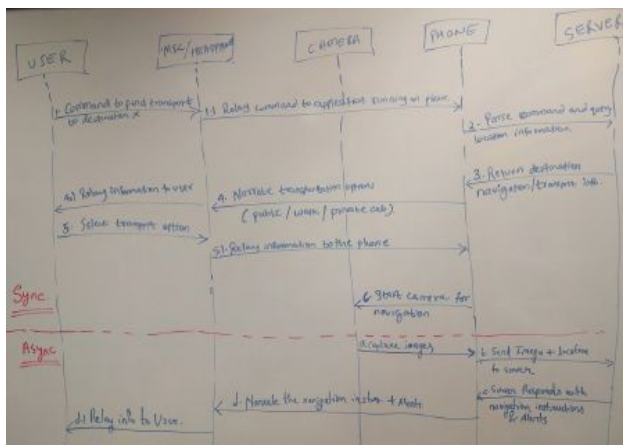 USER
CAMERA
PHONE
SERVER
1. Command to find transport
to destination x
1.1 Relay command to application running on phone
2. Parse command and query
location information
3. Return destination
navigation/transport info.
4. Narrate transportation options
(public / walk / private cab)
Relay information to user
5. Select transport option
5.1. Relay information to the phone
6. Start camera for
navigation
Sync
Async
a. capture images
b. Send Images + location
to server
c. Server Responds with
navigation instructions
& Alerts
d. Narrate the navigation + Alerts
d.1 Relay info to User.